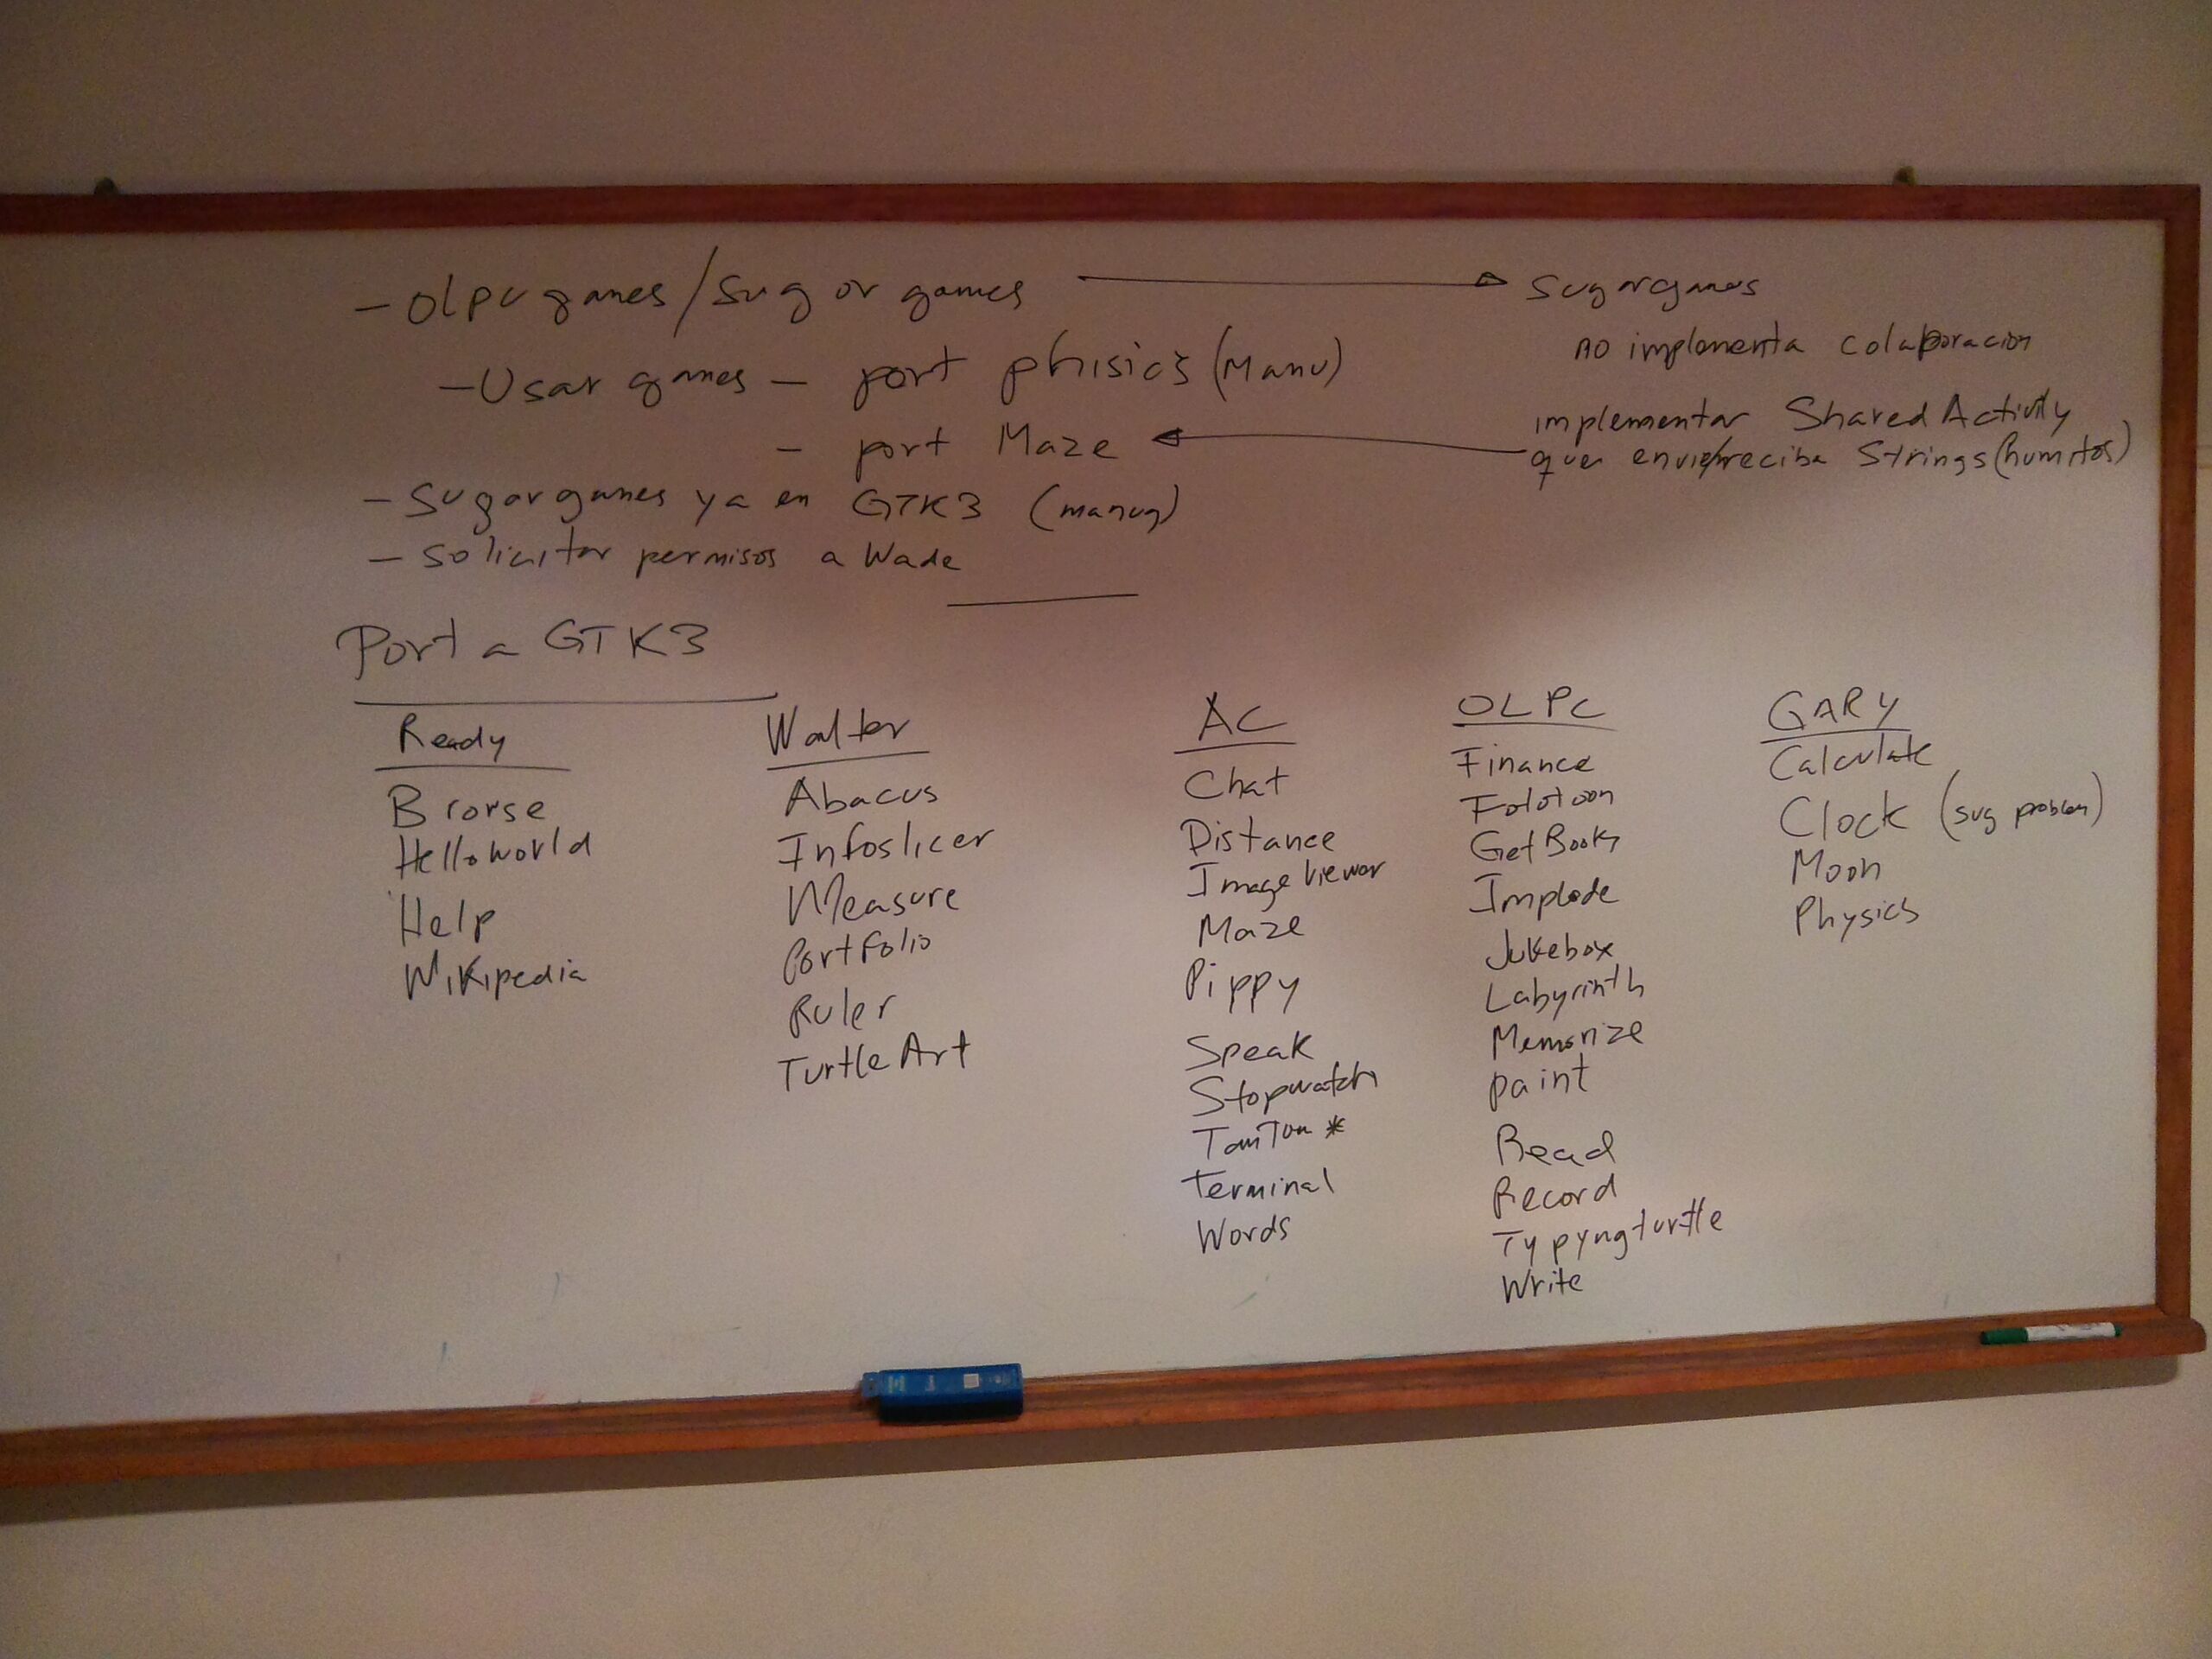 - Olpc games/Sugar games
Sugargames
no implementa colaboracion
- Usar games - port phisics (Manu)
- port Maze
implementar Shared Activity
que envie/reciba Strings (humitos)
- Sugargames ya en GTK3 (manuq)
- Solicitar permisos a Wade
Port a GTK3
Ready
Brorse
Helloworld
Help
Wikipedia
Walter
Abacus
Infoslicer
Measure
Portfolio
Ruler
TurtleArt
AC
Chat
Distance
Image Viewer
Maze
Pippy
Speak
Stopwatch
TamTam *
Terminal
Words
OLPC
Finance
Fototoon
GetBooks
Implode
Jukebox
Labyrinth
Memorize
paint
Read
Record
Typyngturtle
Write
GARY
Calculate
Clock (svg problem)
Moon
Physics